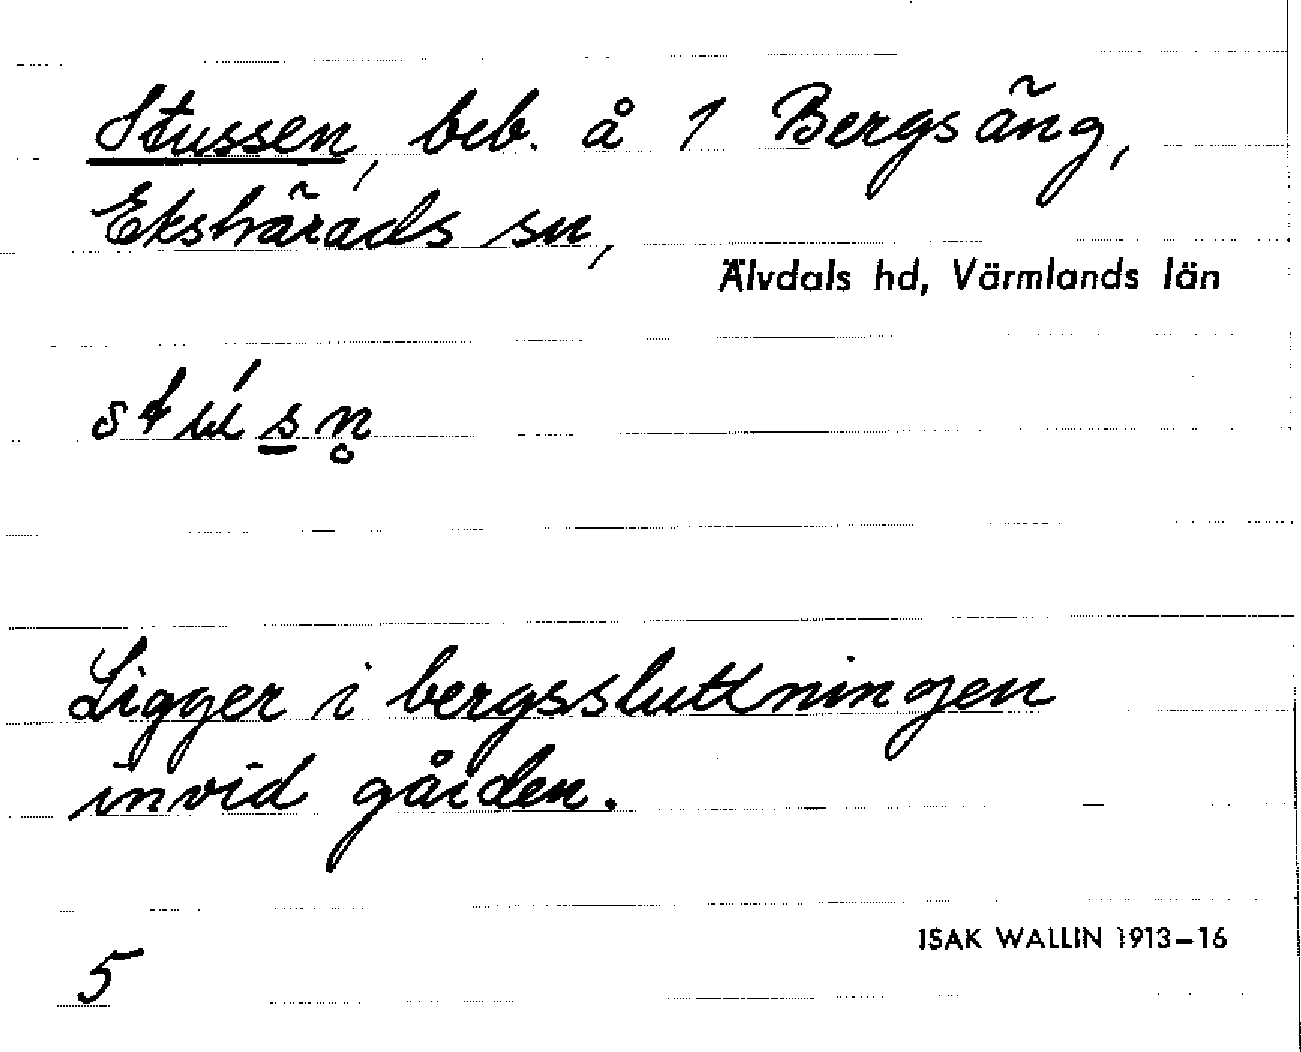 Stussen, beb. å 1 Bergsäng,
Ekshärads sn,
Älvdals hd, Värmlands län
stu̍s̲n̥
Ligger i bergssluttningen
invid gården.
ISAK WALLIN 1913–16
5